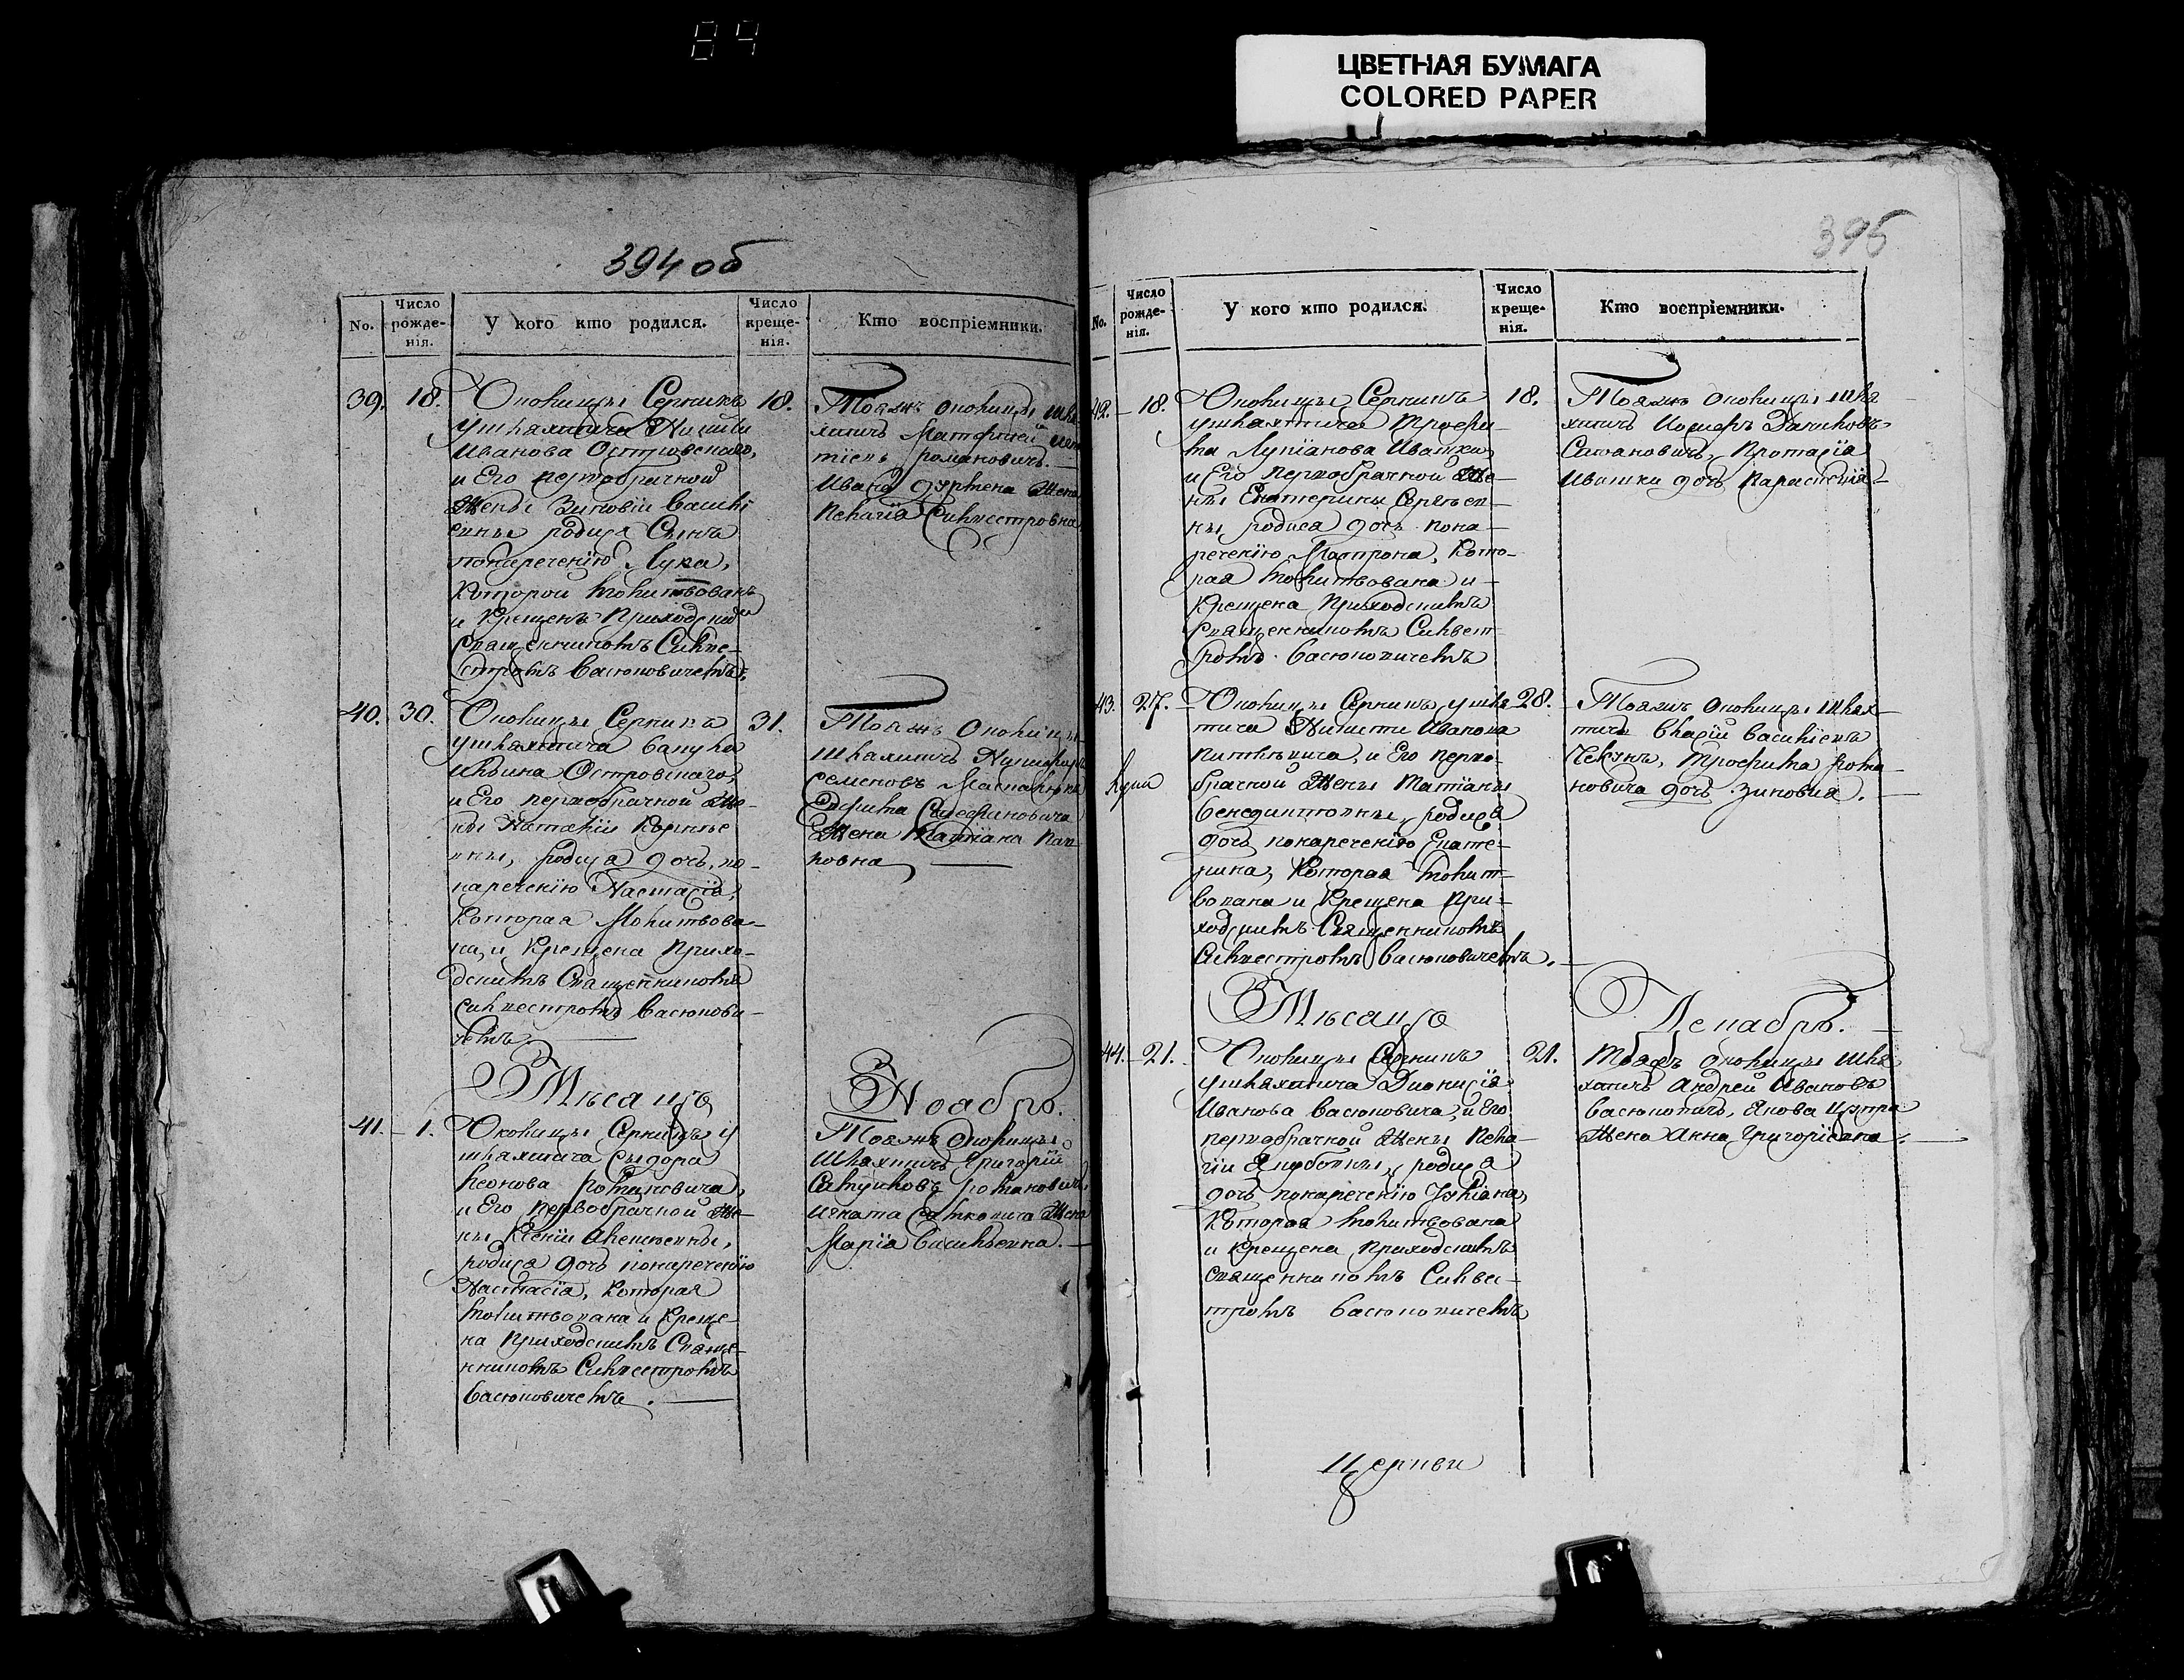 84
ЦВЕТНАЯ БУМАГА
COLORED PAPER
394 об
No.
Число рожде-нія.
У кого кто родился.
Число креще-нія.
Кто воспріемники.
39. 18.
Околицы Серникъ
у шляхтича Никиты
Иванова Островскаго,
и Его первобрачной
Жены Зиновіи Василі
евны родися Сынъ
понаречению Лука,
Которой молитвованъ
и Крещенъ Приходским
Священникомъ Силве-
стромъ Васюковичемъ.
18.
Тояжъ околицы шля
хтичъ Матфей
Романовичъ.
Ивана Жена
Пелагія Силвестровна
40. 30.
Околицы Серникъ
у шляхтича
Ильина Островскаго,
и Его первобрачной Же-
ны Наталіи
евны, родися дочь, по-
нареченію Настасія,
Которая Молитвова-
на, и Крещена Прихо-
дскимъ Священникомъ
Силвестромъ Васюкови-
чемъ.
31.
Тояжъ Околицы
шляхтичъ Никифоръ
Семеновъ
Жена Татіана
Мѣсацъ Ноабръ.
41. 1.
Околицы Серникъ у
шляхтича Сыдора
Леонова Романовича,
и Его Первобрачной Же-
ны Ксеніи Алексѣевны,
родися дочь понареченію
Настасіа, Которая
молитвована и Креще-
на Приходскимъ Свяще-
нникомъ Силвестромъ
Васюковичемъ.
Тояжъ Околицы
Шляхтичъ Григорій
Романовичъ,
Игната Жена
Марія Васильевна.
395
No.
Число рожде-нія.
У кого кто родился.
Число креще-нія.
Кто воспріемники.
42. 18.
Околицы Серникъ
у шляхтича Трофи-
ма Лукіанова Ивашки,
и Его первобрачной Же-
ны Екатерины Сергѣев-
ны, родися дочь пона-
речению Матрона, Кото-
рая молитвована и
Крещена Приходскимъ
Священникомъ Силвест-
ромъ Васюковичемъ
18.
Тояжъ околицы шля
хтичъ Даниловъ
Симановичъ, Протасіа
Ивашки дочь Параскевія
43. 27.
Околицы Серникъ у шля
тича Никиты Иванова
и Его перво-
брачной Жены Татіаны
Бенедиктовны, родися
дочь понареченію Екате-
рина, Которая молит-
вована и Крещена При-
ходскимъ Священникомъ
Силвестромъ Васюковичемъ.
28.
Тояжъ околицы шлях-
тичъ Василіевъ
Трофима Рома-
новича дочь Зиновія.
Мѣсацъ Декабръ.
44. 21.
Околицы Серникъ
у шляхтича Дионисіа
Иванова Васюковича, и Его
первобрачной Жены Пела-
гіи Якубовны, родися
дочь понареченію Уліана,
Которая молитвована
и Крещена Приходскимъ
Священникомъ Силвес-
тромъ Васюковичемъ
21.
Тояжъ околицы шля
хтичъ Андрей Ивановъ
Васюковичъ, Якова
Жена Анна Григоріевна.
Церкви